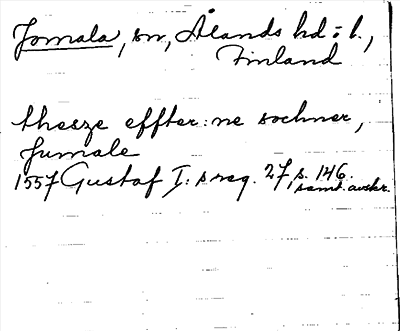 Jomala, sn, Ålands hd o l.,
Finland
thesze effter:ne sochner,
Jumale
1557 Gustaf I:s reg. 27, s. 146.
samt. avskr.